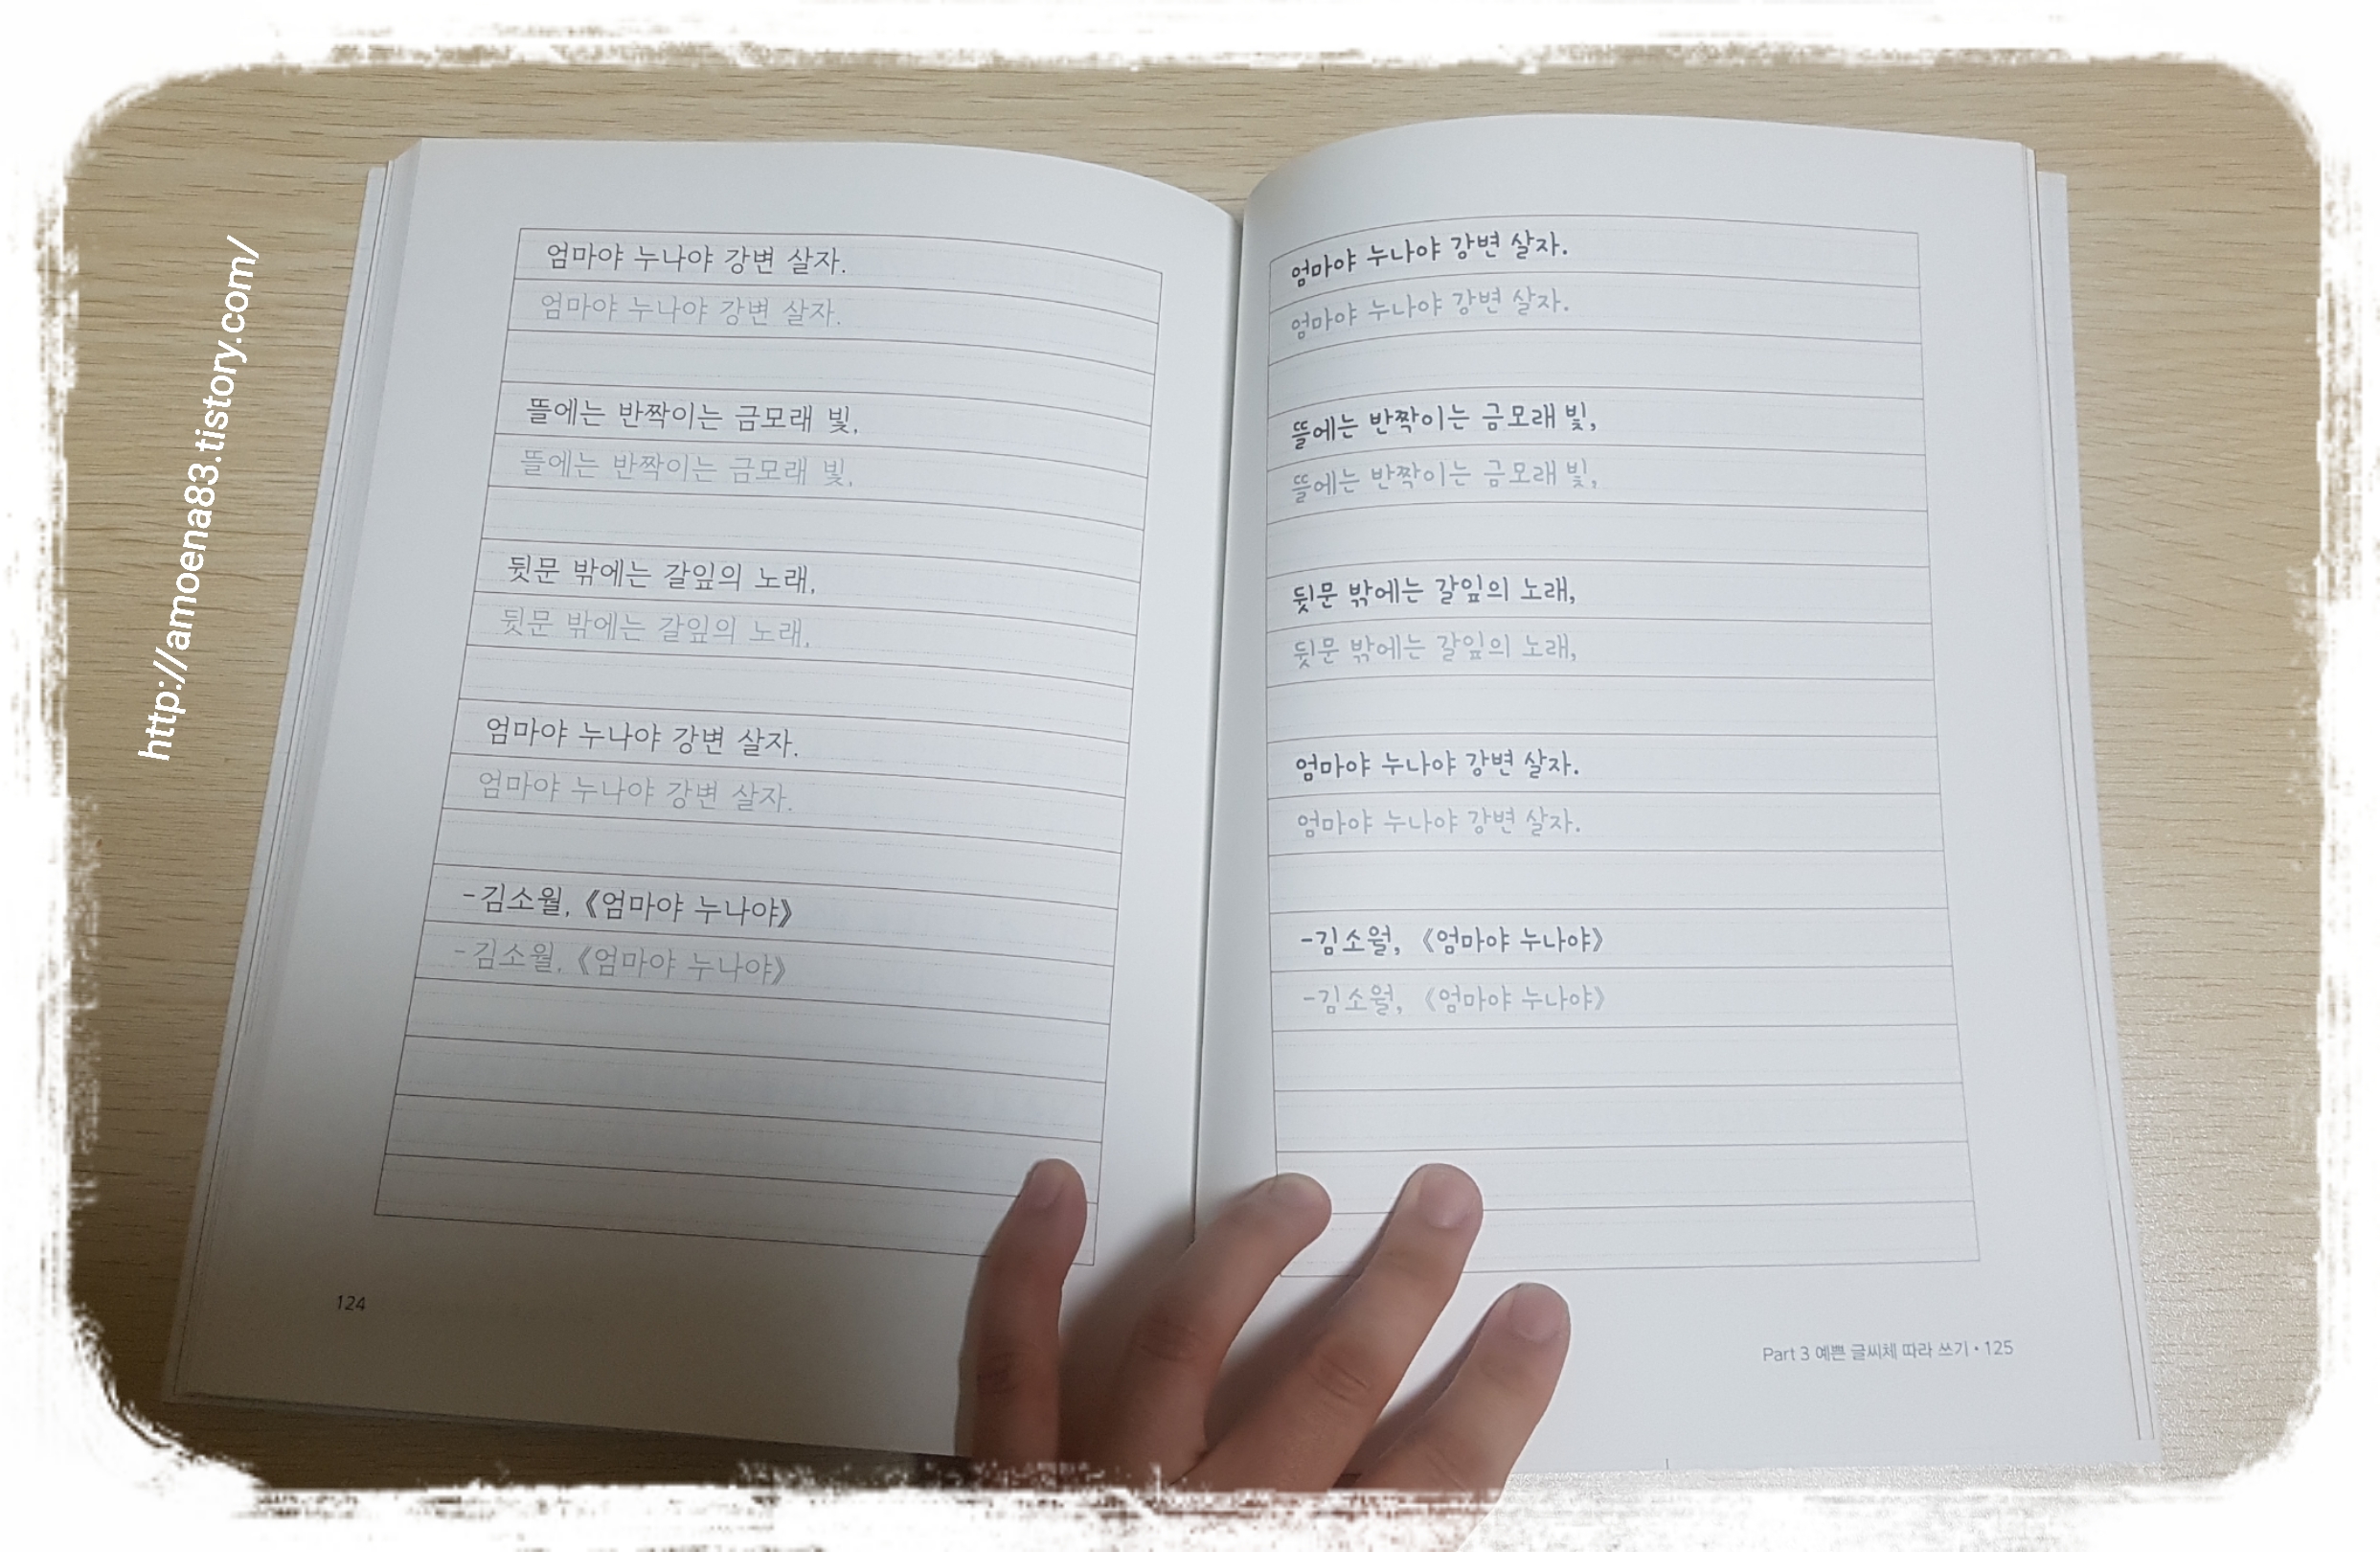 http://amoena83.tistory.com/
엄마야 누나야 강변 살자.
엄마야 누나야 강변 살자.
뜰에는 반짝이는 금모래 빛,
뜰에는 반짝이는 금모래 빛,
뒷문 밖에는 갈잎의 노래,
뒷문 밖에는 갈잎의 노래,
엄마야 누나야 강변 살자.
엄마야 누나야 강변 살자.
-김소월, 《엄마야 누나야》
-김소월, 《엄마야 누나야》
124
엄마야 누나야 강변 살자.
엄마야 누나야 강변 살자.
뜰에는 반짝이는 금모래 빛,
뜰에는 반짝이는 금모래 빛,
뒷문 밖에는 갈잎의 노래,
뒷문 밖에는 갈잎의 노래,
엄마야 누나야 강변 살자.
엄마야 누나야 강변 살자.
-김소월, 《엄마야 누나야》
-김소월, 《엄마야 누나야》
Part 3 예쁜 글씨체 따라 쓰기 • 125